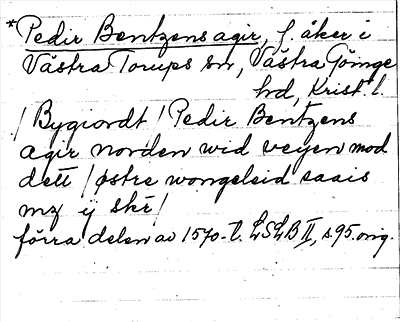 *Pedir Bentzens agir, f. åker i
Västra Torups sn, Västra Göinge
hd, Krist. l.
/Bygiordt/ Pedir Bentzens
agir norden wid veyen mod
dett /østre wongeleid saais
mz ij skr/
förra delen av 1570-t. LSLB II, s. 95. orig.